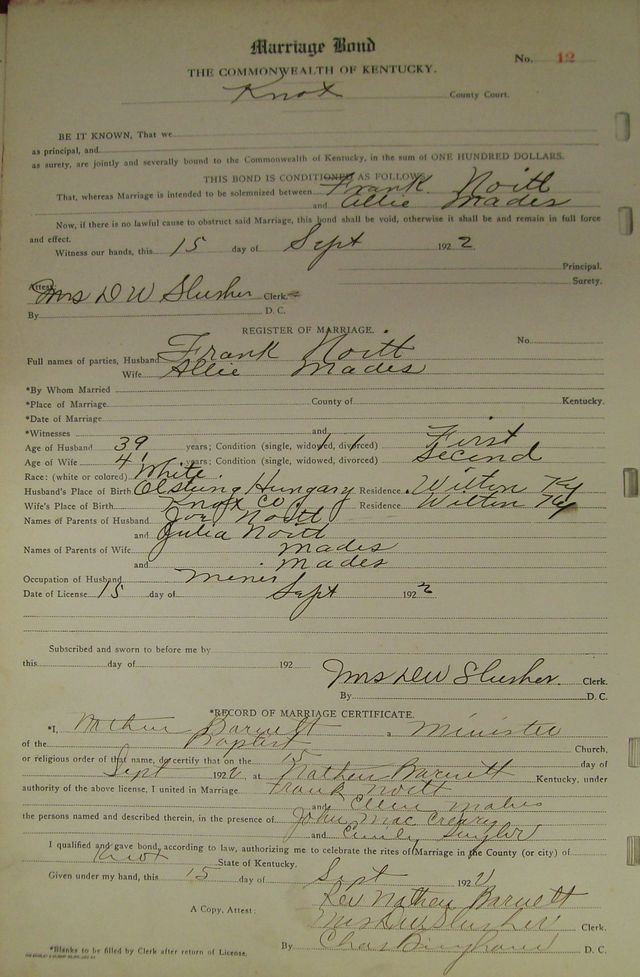 Marriage Bond
No. 12
THE COMMONWEALTH OF KENTUCKY.
Knox County Court.
BE IT KNOWN, That we
as principal, and
as surety, are jointly and severally bound to the Commonwealth of Kentucky, in the sum of ONE HUNDRED DOLLARS.
THIS BOND IS CONDITIONED AS FOLLOWS
That, whereas Marriage is intended to be solemnized between Frank Noitt
and Allie Mades
Now, if there is no lawful cause to obstruct said Marriage, this bond shall be void, otherwise it shall be and remain in full force
and effect.
Witness our hands, this 15 day of Sept 1922
Principal.
Surety.
Attest: Mrs D W Slusher Clerk
By D. C.
REGISTER OF MARRIAGE.
No.
Full names of parties, Husband Frank Noitt
Wife Allie Mades
*By Whom Married
*Place of Marriage County of Kentucky.
*Date of Marriage
*Witnesses and
Age of Husband 39 years; Condition (single, widowed, divorced) First
Age of Wife 41 years; Condition (single, widowed, divorced) Second
Race: (white or colored) White
Husband's Place of Birth Hungary Residence Wilton Ky
Wife's Place of Birth Knox Co Residence Wilton Ky
Names of Parents of Husband Joe Noitt
and Julia Noitt
Names of Parents of Wife Mades
and Mades
Occupation of Husband Miner
Date of License 15 day of Sept 1922
Subscribed and sworn to before me by
this day of 192
Mrs D W Slusher. Clerk.
By D. C.
*RECORD OF MARRIAGE CERTIFICATE.
*I, Nathen Barnett a Minister
of the Baptist Church,
or religious order of that name, do certify that on the 15 day of
Sept 1922 at Nathen Barnett Kentucky, under
authority of the above license, I united in Marriage Frank Noitt
and Mabes
the persons named and described therein, in the presence of John Mac Creary
and Emily
I qualified and gave bond, according to law, authorizing me to celebrate the rites of Marriage in the County (or city) of
Knox State of Kentucky.
Given under my hand, this 15 day of Sept 1922
Rev Nathen Barnett
A Copy, Attest: Mrs D W Slusher Clerk.
By Chas Bingham D. C.
*Blanks to be filled by Clerk after return of License.